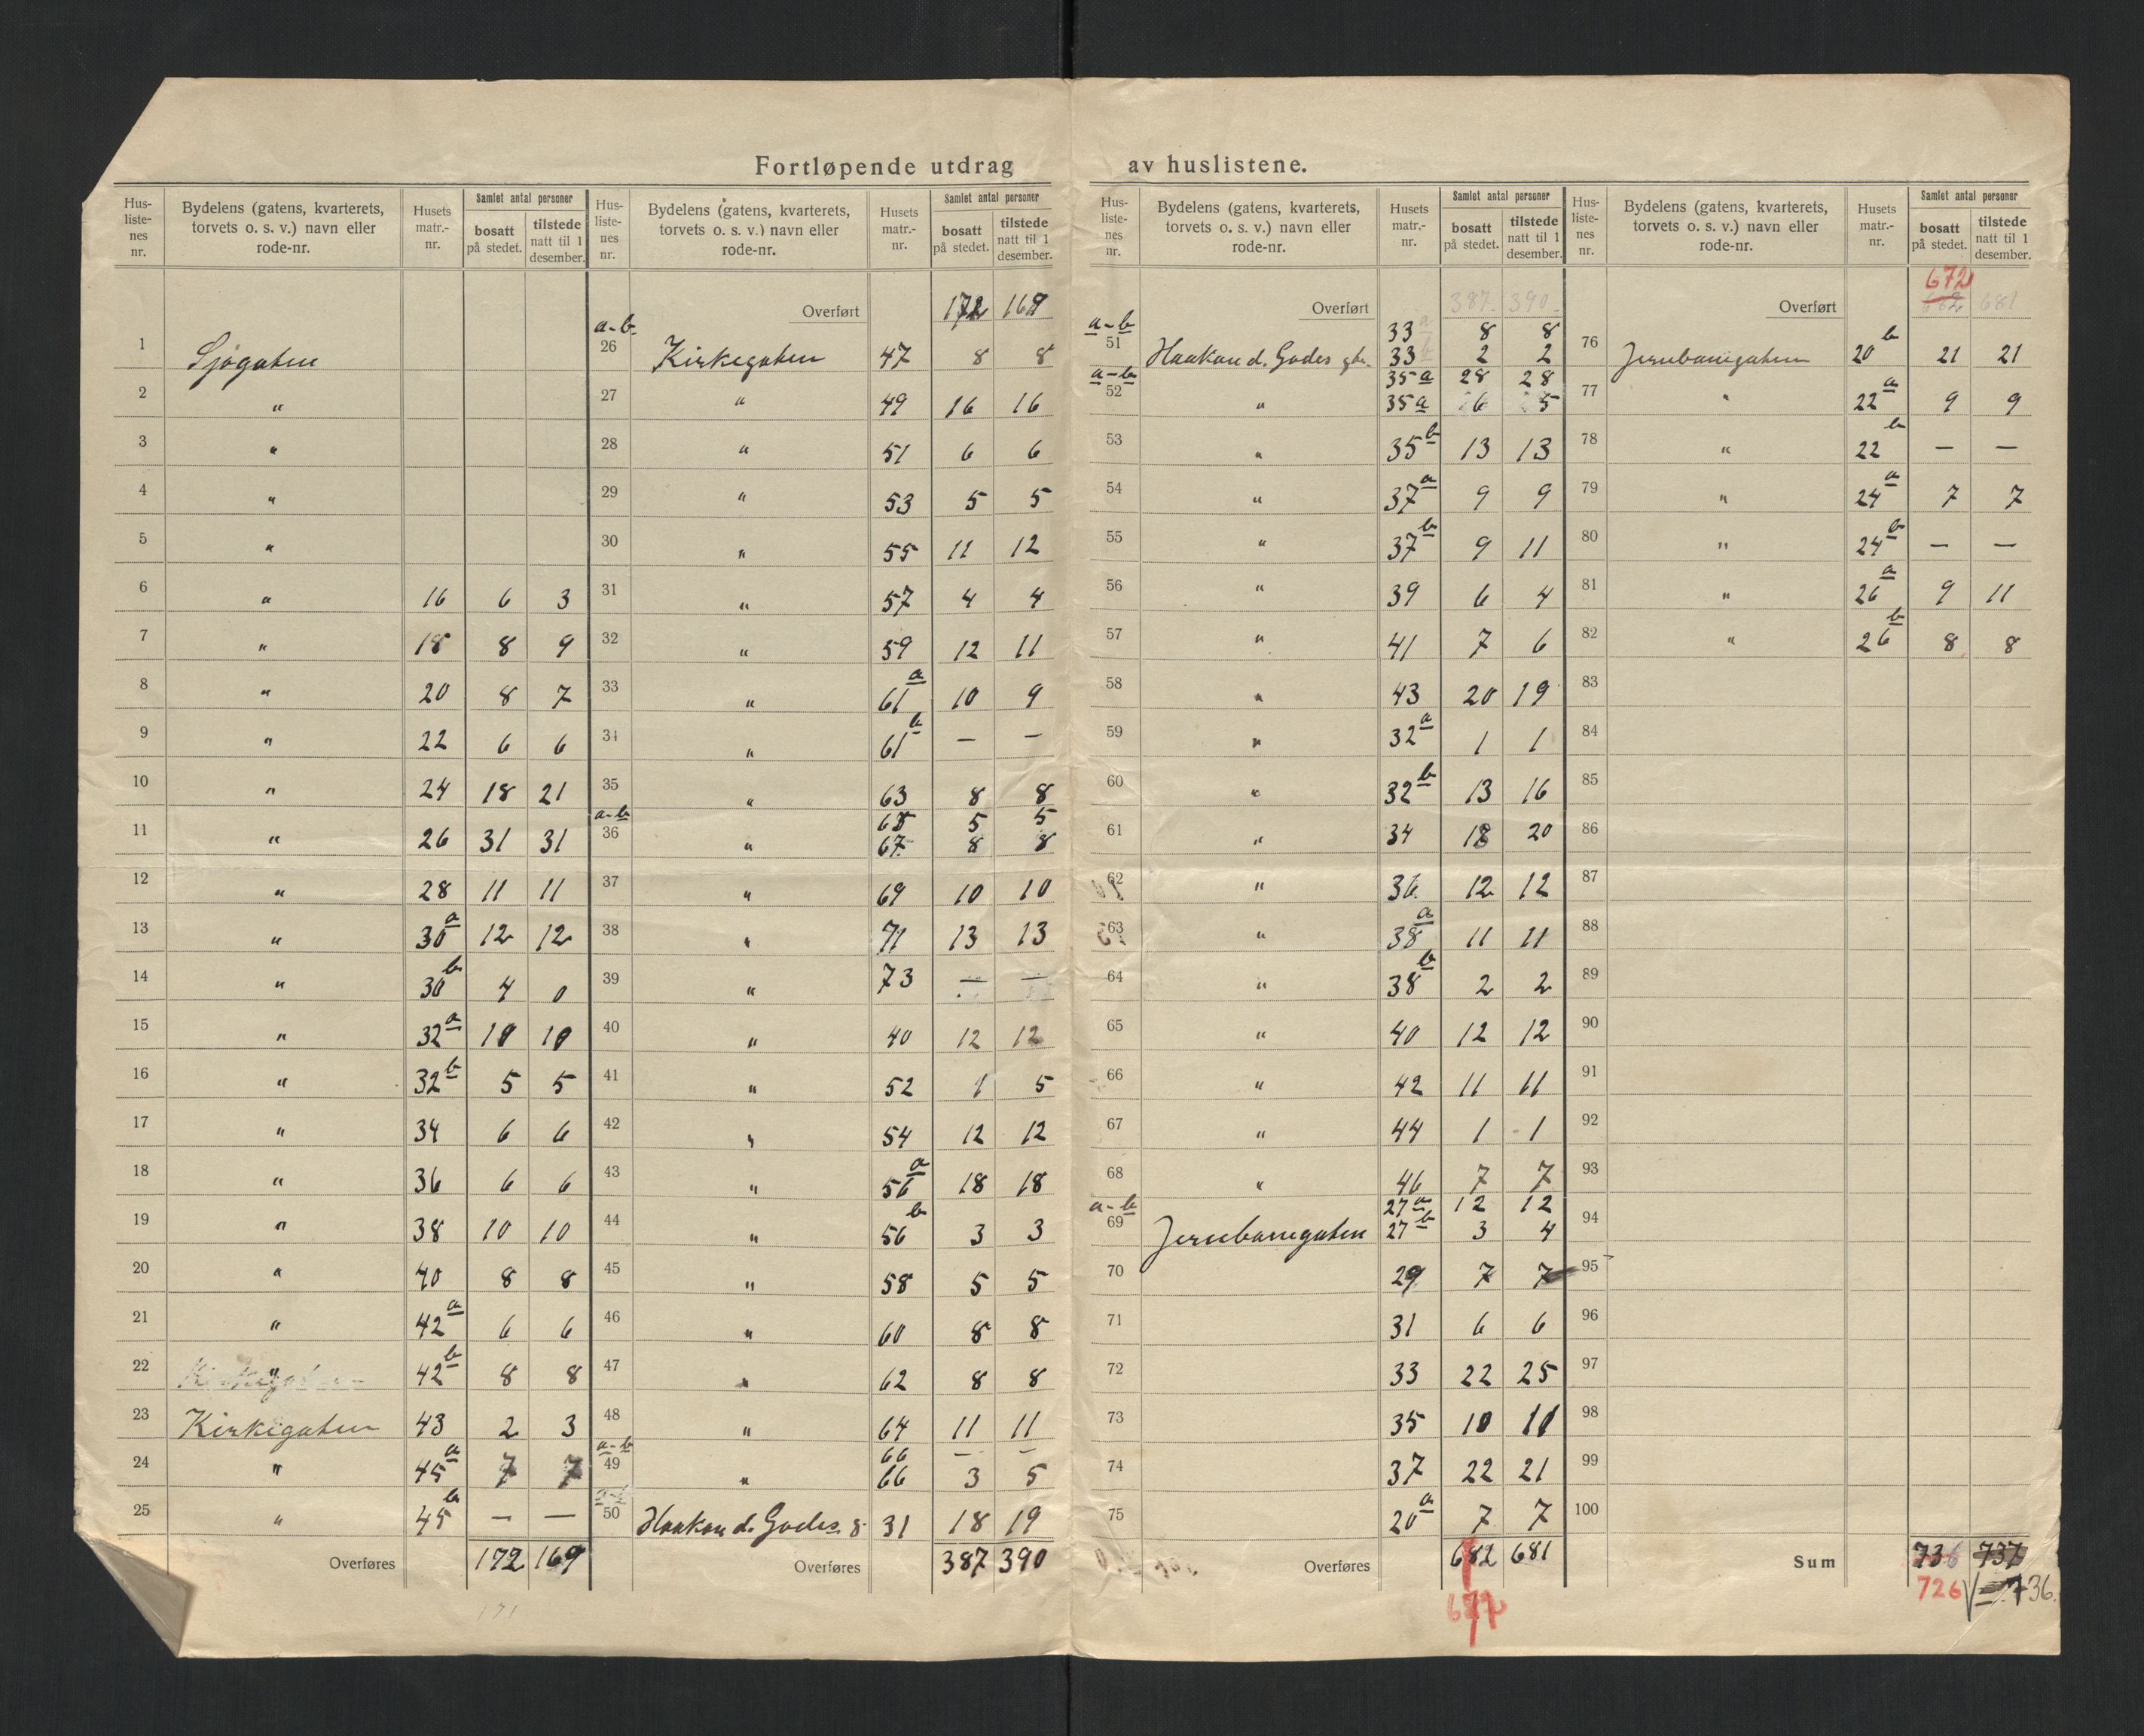 Fortløpende utdrag av huslistene.
Hus-liste-nes nr. | Bydelens (gatens, kvarterets, torvets o. s. v.) navn eller rode-nr. | Husets matr.-nr. | Samlet antal personer | bosatt på stedet. | tilstede natt til 1 desember.
1 Sjøgaten
2 "
3 "
4 "
5 "
6 " 16 6 3
7 " 18 8 9
8 " 20 8 7
9 " 22 6 6
10 " 24 18 21
11 " 26 31 31
12 " 28 11 11
13 " 30a 12 12
14 " 30b 4 0
15 " 32a 10 10
16 " 32b 5 5
17 " 34 6 6
18 " 36 6 6
19 " 38 10 10
20 " 40 8 8
21 " 42a 6 6
22 " 42b 8 8
23 Kirkegaten 43 2 3
24 " 45a 7 7
25 " 45b — —
Overføres 172 169
Hus-liste-nes nr. | Bydelens (gatens, kvarterets, torvets o. s. v.) navn eller rode-nr. | Husets matr.-nr. | Samlet antal personer | bosatt på stedet. | tilstede natt til 1 desember.
Overført 172 169
a-b 26 Kirkegaten 47 8 8
27 " 49 16 16
28 " 51 6 6
29 " 53 5 5
30 " 55 11 12
31 " 57 4 4
32 " 59 12 11
33 " 61a 10 9
34 " 61b — —
35 " 63 8 8
a-b 65 5 5
36 " 67 8 8
37 " 69 10 10
38 " 71 13 13
39 " 73 — —
40 " 40 12 12
41 " 52 1 5
42 " 54 12 12
43 " 56a 18 18
44 " 56b 3 3
45 " 58 5 5
46 " 60 8 8
47 " 62 8 8
48 " 64 11 11
a-b 66 — —
49 " 66 3 5
50 Haakon d. Godes g. 31 18 19
Overføres 387 390
Hus-liste-nes nr. | Bydelens (gatens, kvarterets, torvets o. s. v.) navn eller rode-nr. | Husets matr.-nr. | Samlet antal personer | bosatt på stedet. | tilstede natt til 1 desember.
Overført 387 390
a-b 33a 8 8
51 Haakon d. Godes gt. 33b 2 2
a-b 35a 28 28
52 " 35a 6 5
53 " 35b 13 13
54 " 37a 9 9
55 " 37b 9 11
56 " 39 6 4
57 " 41 7 6
58 " 43 20 19
59 " 32a 1 1
60 " 32b 13 16
61 " 34 18 20
62 " 36 12 12
63 " 38a 11 11
64 " 38b 2 2
65 " 40 12 12
66 " 42 11 11
67 " 44 1 1
68 " 46 7 7
a-b 27a 12 12
69 Jernbanegaten 27b 3 4
70 29 7 7
71 31 6 6
72 33 22 25
73 35 10 11
74 37 22 21
75 20a 7 7
Overføres 682 681
Hus-liste-nes nr. | Bydelens (gatens, kvarterets, torvets o. s. v.) navn eller rode-nr. | Husets matr.-nr. | Samlet antal personer | bosatt på stedet. | tilstede natt til 1 desember.
672
Overført 682 681
76 Jernbanegaten 20b 21 21
77 " 22a 9 9
78 " 22b — —
79 " 24a 7 7
80 " 24b — —
81 " 26a 9 11
82 " 26b 8 8
83
84
85
86
87
88
89
90
91
92
93
94
95
96
97
98
99
100
Sum 736 737
726 736.